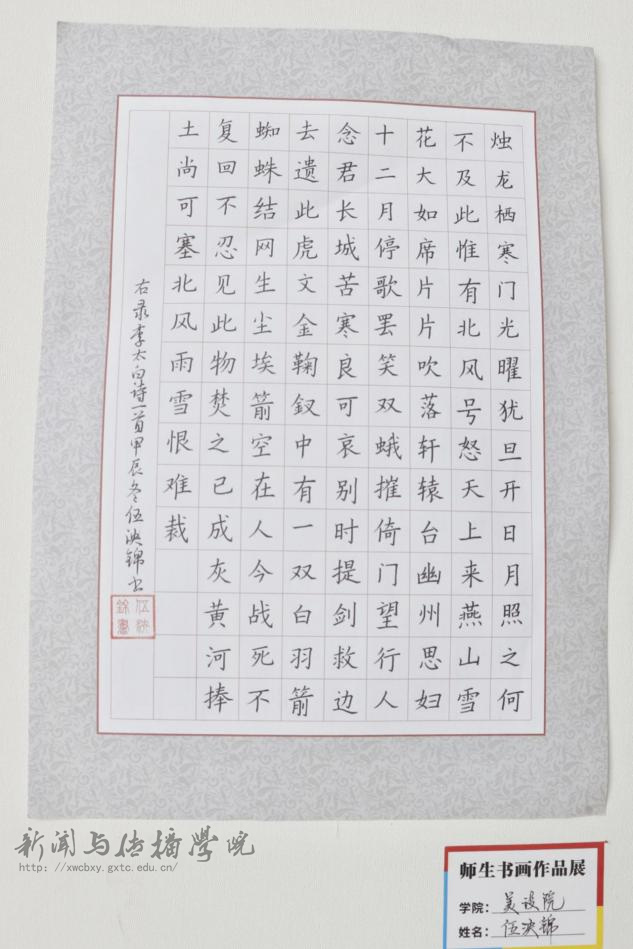 烛龙栖寒门光曜犹旦开日月照之何
不及此惟有北风号怒天上来燕山雪
花大如席片片吹落轩辕台幽州思妇
十二月停歌罢笑双蛾摧倚门望行人
念君长城苦寒良可哀别时提剑救边
去遗此虎文金鞞钗中有一双白羽箭
蜘蛛结网生尘埃箭空在人今战死不
复回不忍见此物焚之已成灰黄河捧
土尚可塞北风雨雪恨难裁
右录李太白诗一首甲辰冬伍泱锦书
新闻与传播学院
http://xwcbxy.gxtc.edu.cn/
师生书画作品展
学院：美设院
姓名：伍泱锦